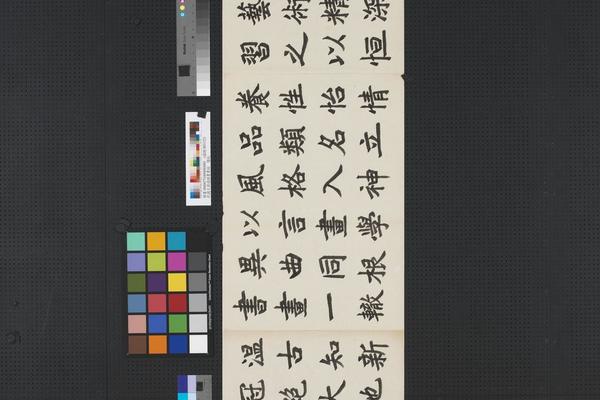 藝術精深
習之以恒
養性怡情
品類名立
風格入神
以言畫學
異曲同根
書畫一轍
溫古知新
冠絶大地